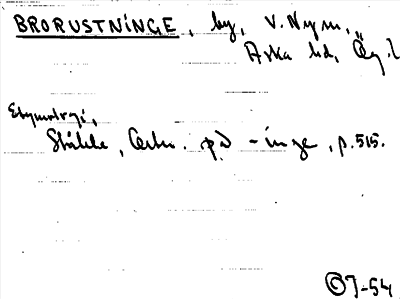 BRORUSTNINGE, by, V. Nym,
Aska hd, Ög. l
Etymologi,
Ståhle, Ortn. på -inge, p. 515.
OJ-54